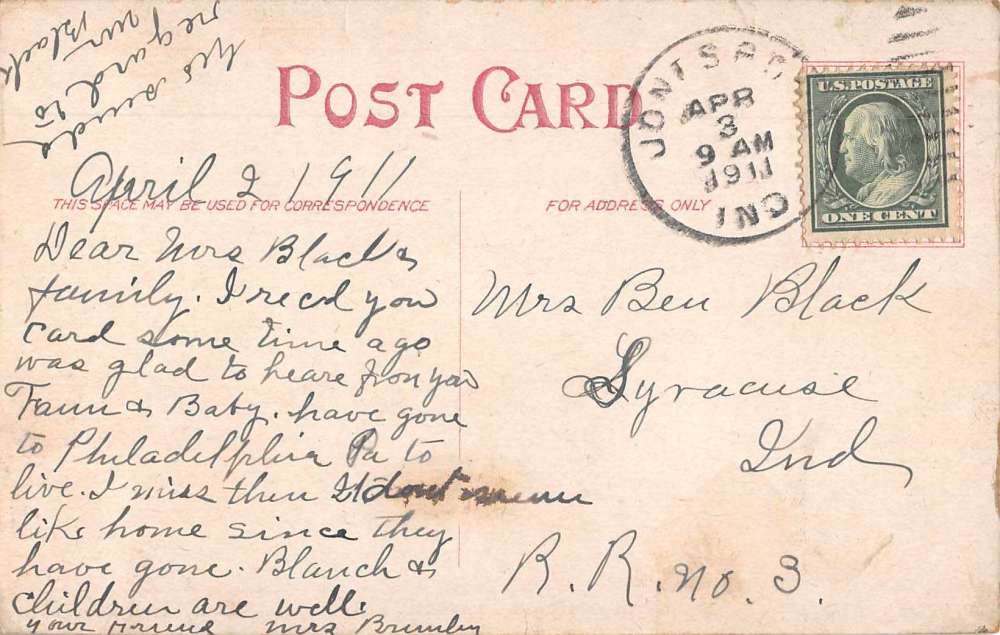 POST CARD
THIS SPACE MAY BE USED FOR CORRESPONDENCE
FOR ADDRESS ONLY
U.S. POSTAGE
ONE CENT
APR
3
9 AM
1911
IND
April 2 1911
Dear Mrs Black &
family. I recd you
card some time ago
was glad to heare fron you
Fann & Baby. have gone
to Philadelphia Pa to
live. I miss then It dont seem
like home since they
have gone. Blanch &
children are well.
your Friend Mrs Brumley
We send
regard to
Mr Black
Mrs Ben Black
Syracuse
Ind
R. R. No. 3.